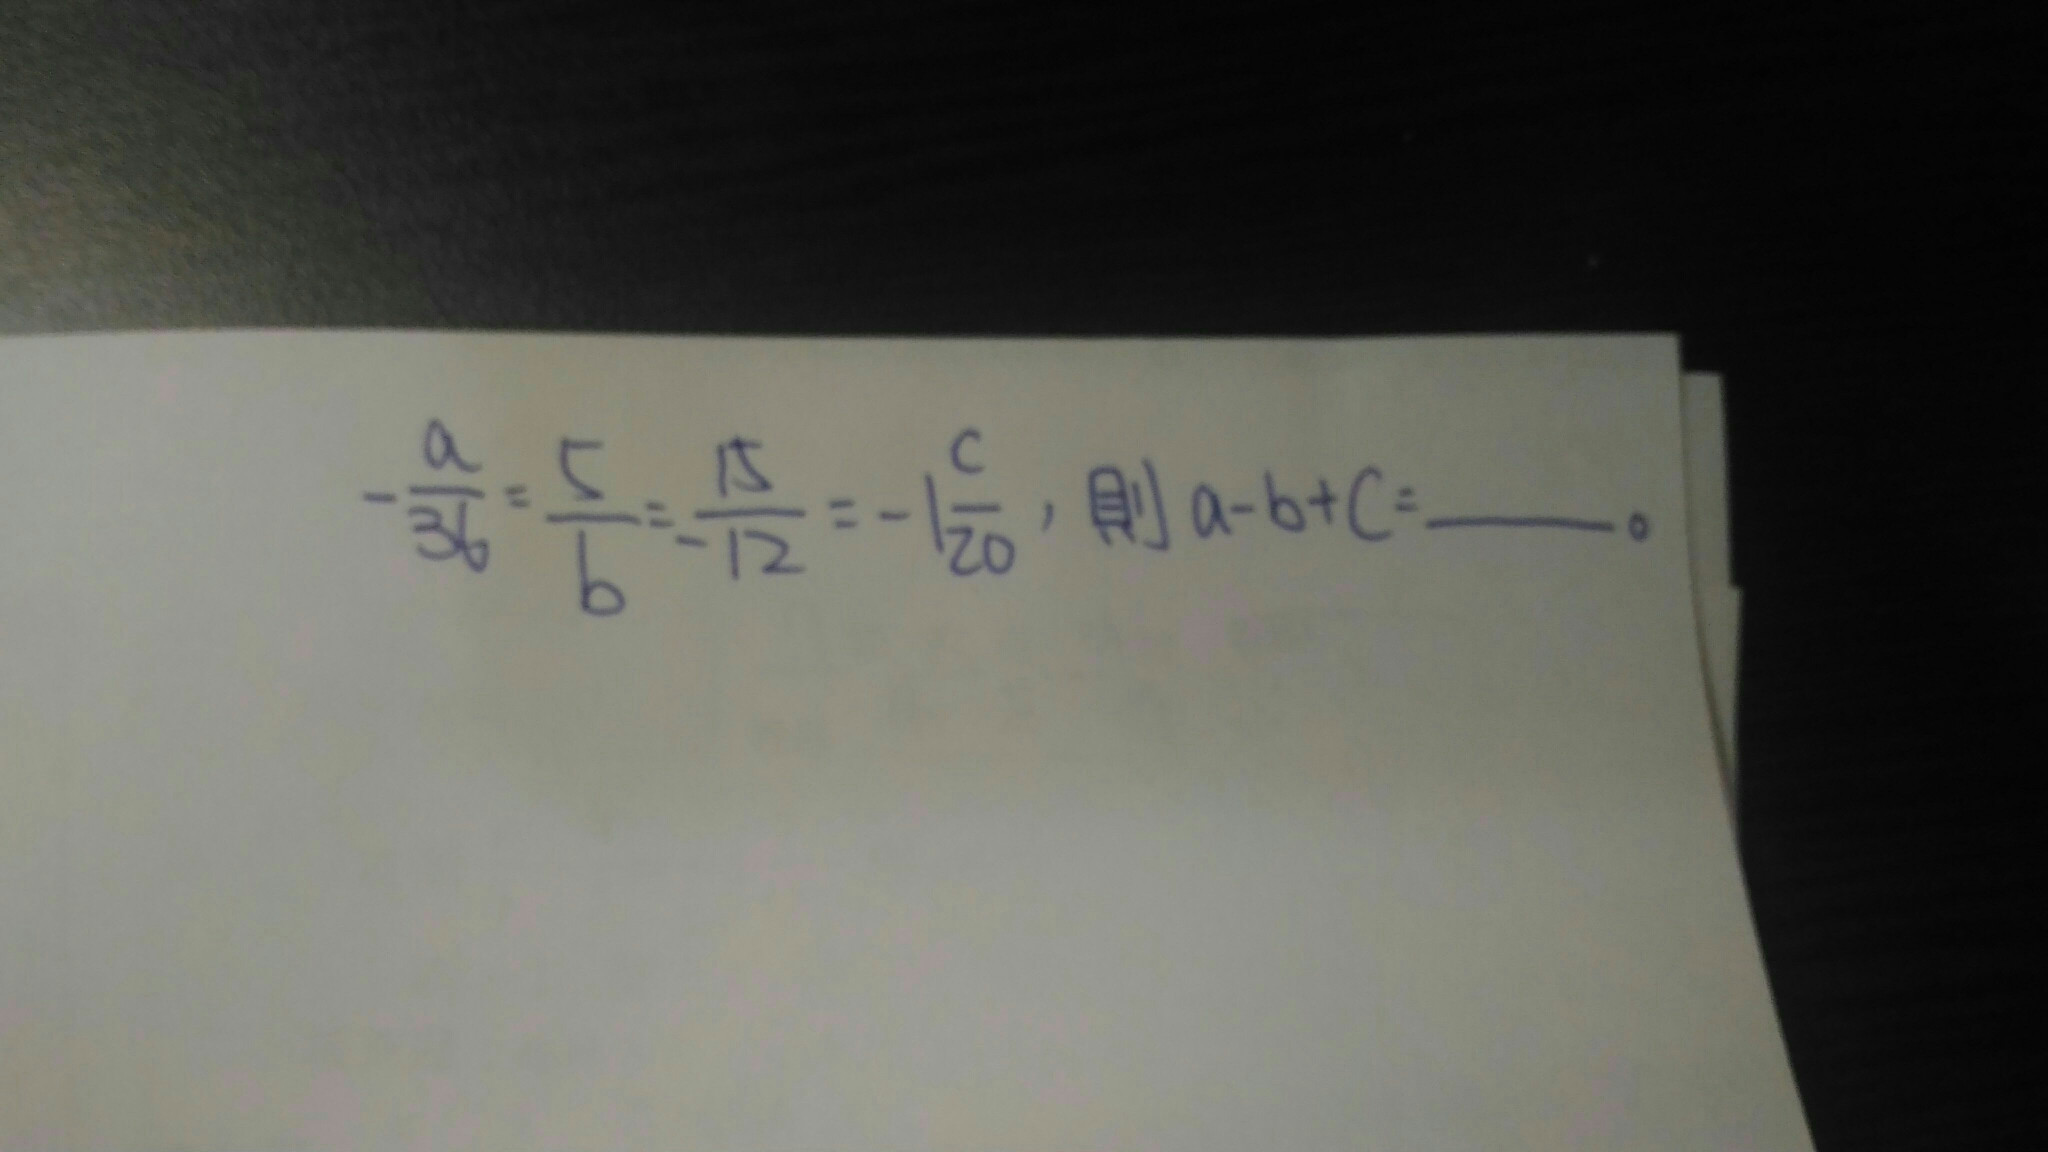 -a/36 = 5/b = 15/-12 = -1 c/20 , 則 a-b+c=______。